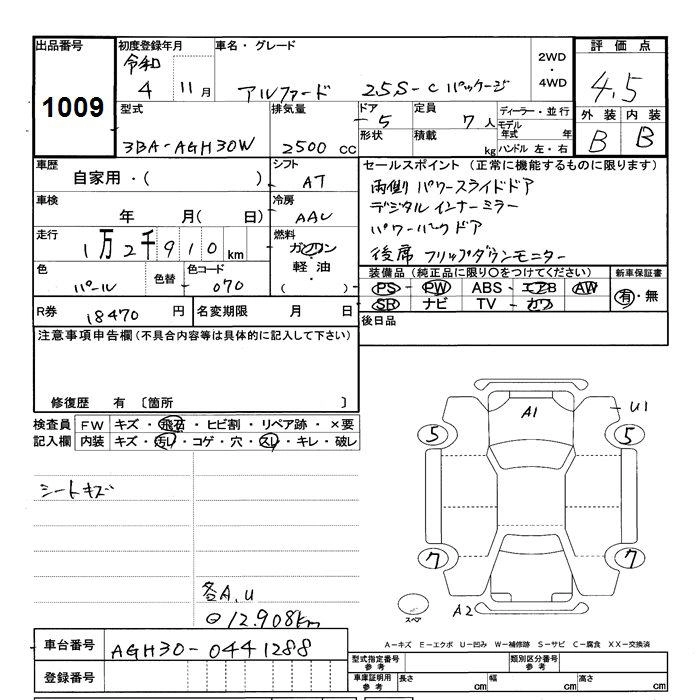 出品番号 初度登録年月 車名・グレード 評価点
1009
令和
4 11月 アルファード 2.5S-Cパッケージ 2WD・4WD 4.5
型式 排気量 ドア 定員 ディーラー・並行 外装 内装
3BA-AGH30W 2500 cc 5 7人 モデル年式 年 B B
形状 積載 kg ハンドル 左・右
車歴 シフト セールスポイント (正常に機能するものに限ります)
自家用・( ) AT 両側パワースライドドア
車検 冷房 デジタルインナーミラー
年 月( 日) AAC パワーバックドア
走行 燃料 後席フリップダウンモニター
1万2千910km ガソリン
軽・油
( )
色 色替 色コード 装備品(純正品に限り○をつけてください) 新車保証書
パール 070 PS・PW ABS・エアB AW 有・無
SR ナビ TV・カワ
R券 18470 円 名変期限 月 日 後日品
注意事項申告欄(不具合内容等は具体的に記入して下さい)
修復歴 有 〔箇所 〕
検査員 FW キズ・飛石・ヒビ割・リペア跡・×要
記入欄 内装 キズ・汚レ・コゲ・穴・スレ・キレ・破レ
シートキズ
各A.U
12.908km
A1
U1
5 5
7 7
スペア
A2
A-キズ E-エクボ U-凹み W-補修跡 S-サビ C-腐食 XX-交換済
車台番号 AGH30-0441288
型式指定番号 参考 類別区分番号 参考
登録番号 車庫証明用 参考 長さ cm 幅 cm 高さ cm